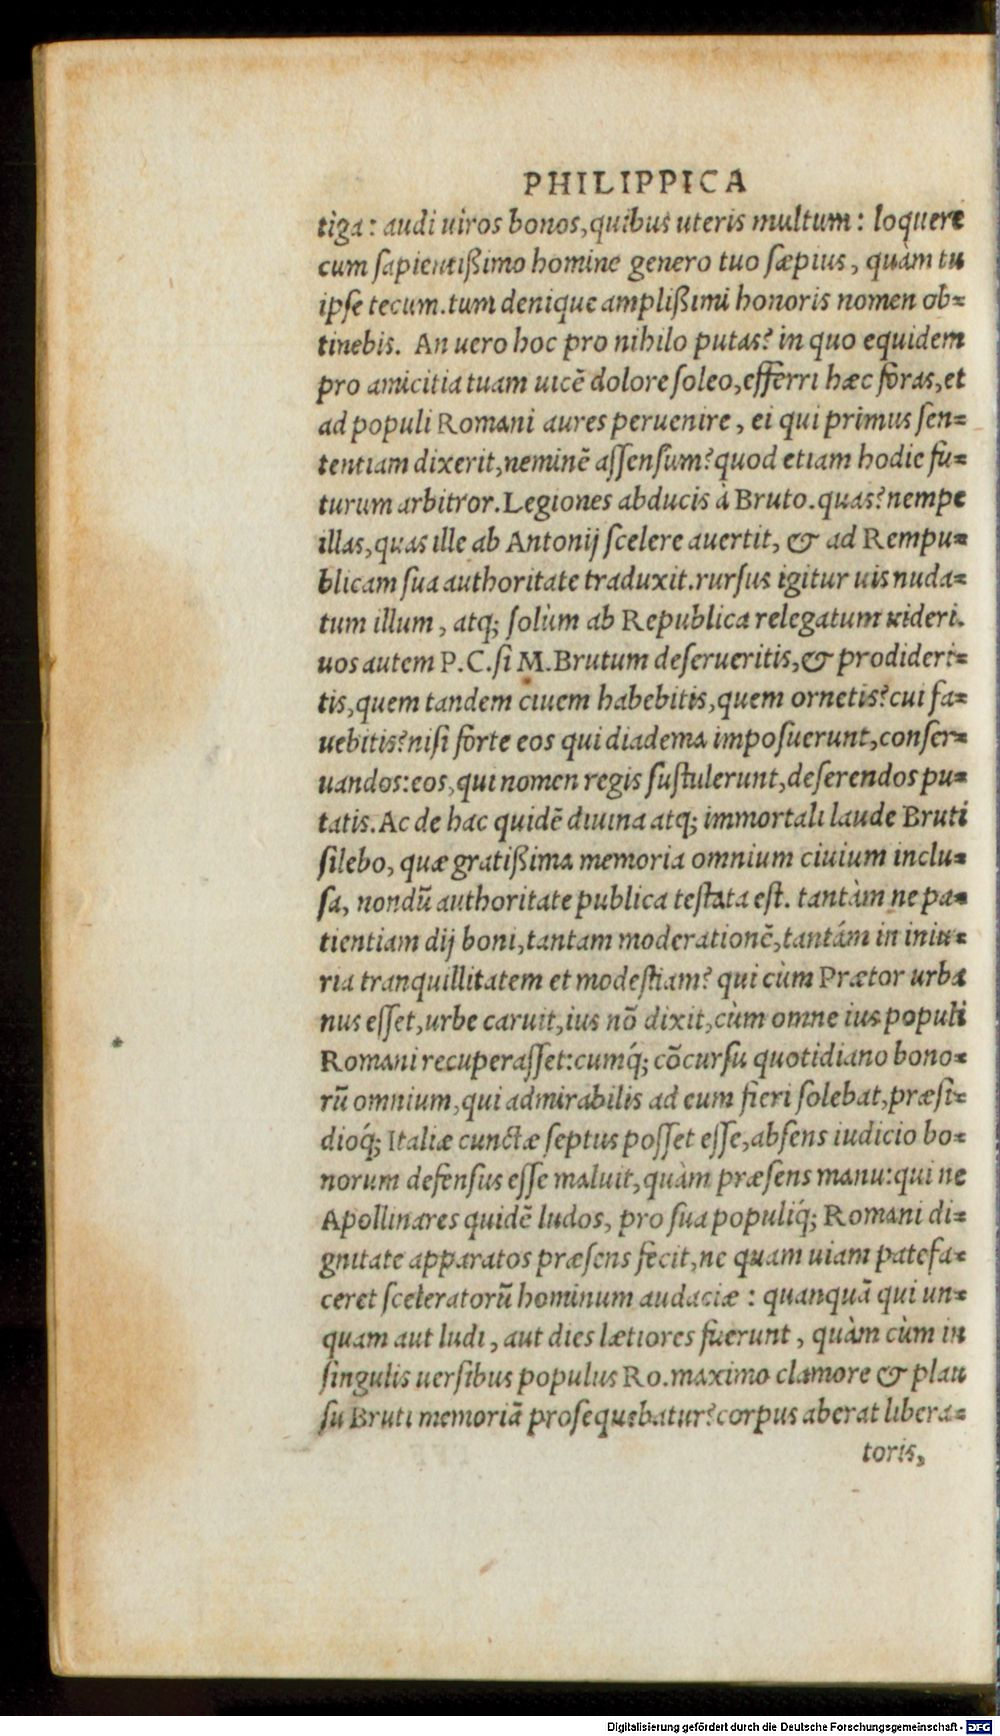 PHILIPPICA
tiga: audi uiros bonos, quibus uteris multum: loquere
cum ſapientißimo homine genero tuo ſæpius, quàm tu
ipſe tecum. tum denique amplißimi honoris nomen ob=
tinebis. An uero hoc pro nihilo putas? in quo equidem
pro amicitia tuam uicē dolore ſoleo, efferri hæc foras, et
ad populi Romani aures peruenire, ei qui primus ſen=
tentiam dixerit, neminē aſſenſum? quod etiam hodie fu=
turum arbitror. Legiones abducis à Bruto. quas? nempe
illas, quas ille ab Antonij ſcelere auertit, & ad Rempu=
blicam ſua authoritate traduxit. rurſus igitur uis nuda=
tum illum, atq; ſolùm ab Republica relegatum uideri.
uos autem P.C. ſi M. Brutum deſerueritis, & prodideri=
tis, quem tandem ciuem habebitis, quem ornetis? cui fa=
uebitis? niſi forte eos qui diadema impoſuerunt, conſer=
uandos: eos, qui nomen regis ſuſtulerunt, deſerendos pu=
tatis. Ac de hac quidē diuina atq; immortali laude Bruti
ſilebo, quæ gratißima memoria omnium ciuium inclu=
ſa, nondū authoritate publica teſtata eſt. tantàm ne pa=
tientiam dij boni, tantam moderationē, tantám in iniu=
ria tranquillitatem et modeſtiam? qui cùm Prætor urba
nus eſſet, urbe caruit, ius nō dixit, cùm omne ius populi
Romani recuperaſſet: cumq́; cōcurſu quotidiano bono=
rū omnium, qui admirabilis ad eum fieri ſolebat, præſi=
dioq́; Italiæ cunctæ ſeptus poſſet eſſe, abſens iudicio bo=
norum defenſus eſſe maluit, quàm præſens manu: qui ne
Apollinares quidē ludos, pro ſua populiq́; Romani di=
gnitate apparatos præſens fecit, ne quam uiam patefa=
ceret ſceleratorū hominum audaciæ: quanquā qui un=
quam aut ludi, aut dies lætiores fuerunt, quàm cùm in
ſingulis uerſibus populus Ro. maximo clamore & plau
ſu Bruti memoriā proſequebatur? corpus aberat libera=
toris,
Digitalisierung gefördert durch die Deutsche Forschungsgemeinschaft - DFG